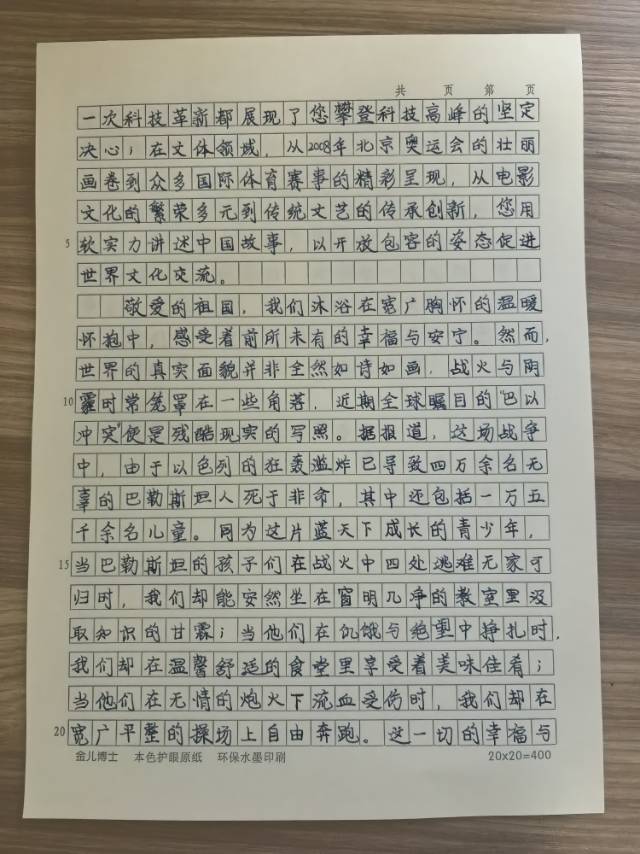 共 页 第 页
一次科技革新都展现了您攀登科技高峰的坚定
决心；在文体领域，从2008年北京奥运会的壮丽
画卷到众多国际体育赛事的精彩呈现，从电影
文化的繁荣多元到传统文艺的传承创新，您用
5 软实力讲述中国故事，以开放包容的姿态促进
世界文化交流。
敬爱的祖国，我们沐浴在宽广胸怀的温暖
怀抱中，感受着前所未有的幸福与安宁。然而，
世界的真实面貌并非全然如诗如画，战火与阴
10 霾时常笼罩在一些角落，近期全球瞩目的“巴以
冲突”便是残酷现实的写照。据报道，这场战争
中，由于以色列的狂轰滥炸已导致四万余名无
辜的巴勒斯坦人死于非命，其中还包括一万五
千余名儿童。同为这片蓝天下成长的青少年，
15 当巴勒斯坦的孩子们在战火中四处逃难无家可
归时，我们却能安然坐在窗明几净的教室里汲
取知识的甘霖；当他们在饥饿与绝望中挣扎时，
我们却在温馨舒适的食堂里享受着美味佳肴；
当他们在无情的炮火下流血受伤时，我们却在
20 宽广平整的操场上自由奔跑。这一切的幸福与
金儿博士 本色护眼原纸 环保水墨印刷 20x20=400